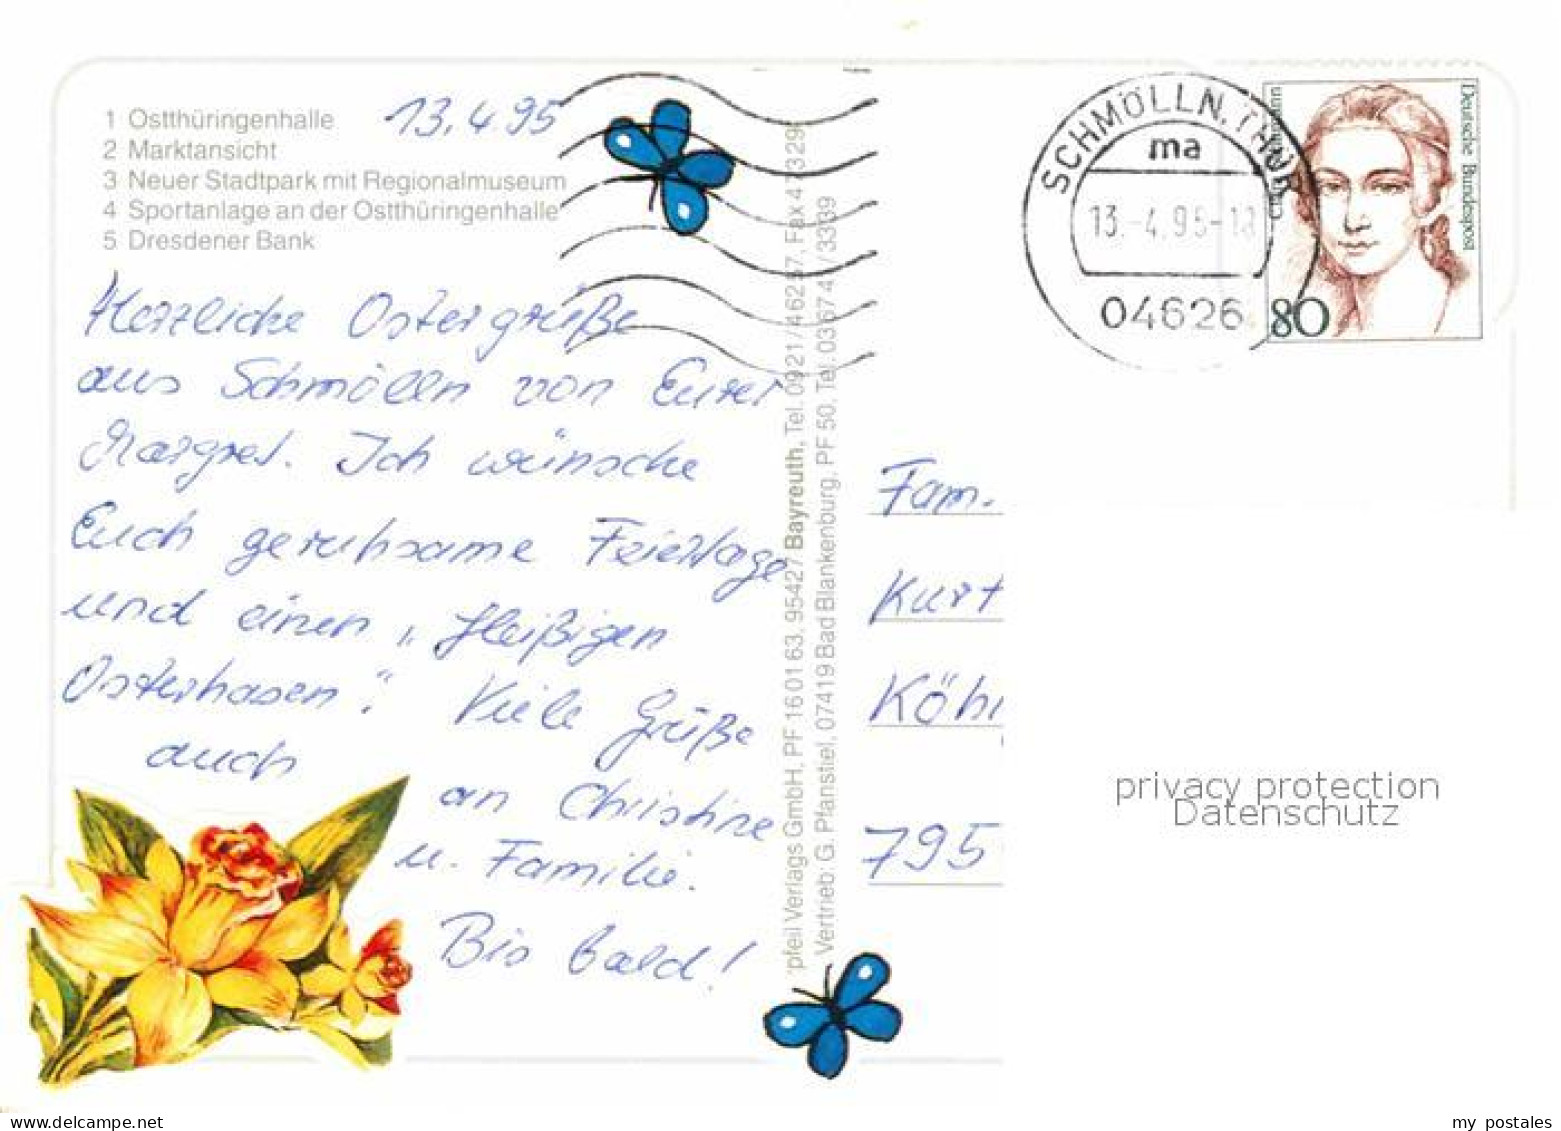 1 Ostthüringenhalle
2 Marktansicht
3 Neuer Stadtpark mit Regionalmuseum
4 Sportanlage an der Ostthüringenhalle
5 Dresdener Bank
13.4.95
Herzliche Ostergrüße
aus Schmölln von Eurer
Margret. Ich wünsche
Euch geruhsame Feiertage
und einen „fleißigen
Osterhasen". Viele Grüße
auch an Christine
u. Familie.
Bis bald!
pfeil Verlags GmbH, PF 16 01 63, 95427 Bayreuth, Tel. 0921/4 62 87, Fax 4 2329
Vertrieb: G. Pfanstiel, 07419 Bad Blankenburg, PF 50, Tel. 03674/3339
SCHMÖLLN, THÜR
ma
13.-4.95-18
04626
Deutsche Bundespost
80
Fam.
Kurt
Köh
795
privacy protection
Datenschutz
www.delcampe.net
my_postales